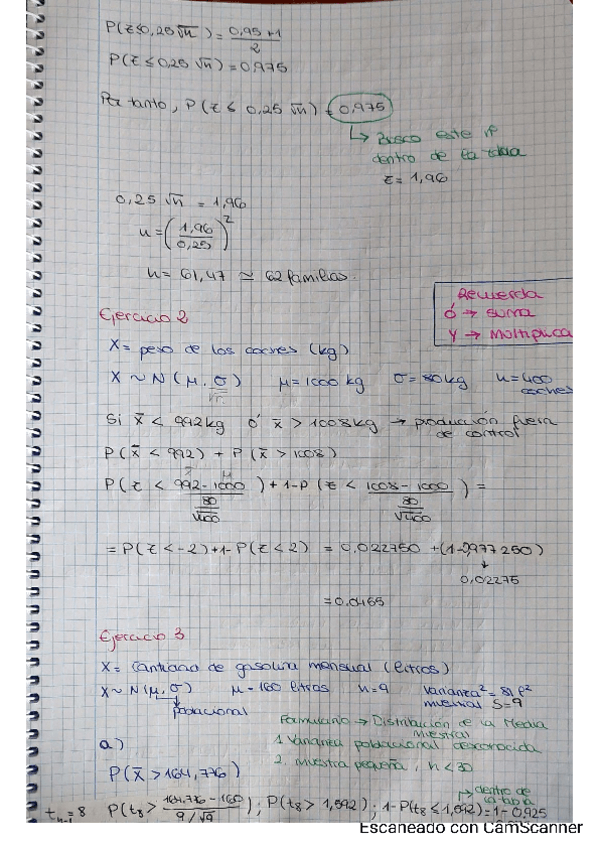 P(z≤0,25√n) = 0,95+1 / 2
P(z ≤ 0,25 √n) = 0,975
Por tanto, P(z ≤ 0,25 √n) = 0,975
↳ Busco este nº
dentro de la tabla
z = 1,96
0,25 √n = 1,96
n = (1,96 / 0,25)²
n = 61,47 ≃ 62 familias
Recuerda
Ó → suma
Y → multiplica
Ejercicio 2
X = peso de los coches (kg)
X ~ N(μ, σ/√n) μ = 1000 kg σ = 80 kg n = 400 coches
Si x̄ < 992 kg ó x̄ > 1008 kg → producción fuera de control
P(x̄ < 992) + P(x̄ > 1008)
P(z < (992 - 1000) / (80/√400)) + 1-P(z < (1008 - 1000) / (80/√400)) =
= P(z < -2) + 1 - P(z < 2) = 0,022750 + (1-0,977250)
↓
0,02275
= 0,0455
Ejercicio 3
X = Cantidad de gasolina mensual (litros)
X ~ N(μ, σ) μ = 160 litros n = 9 Varianza² muestral = 81 l² S = 9
↓ poblacional
Formulario → Distribución de la Media muestral
1. Varianza poblacional desconocida
2. Muestra pequeña, n < 30
a)
P(x̄ > 164,776)
↱ dentro de la tabla
t n-1 = 8 P(t₈ > (164,776 - 160) / (9/√9)); P(t₈ > 1,592); 1-P(t₈ ≤ 1,592) = 1-0,925
Escaneado con CamScanner